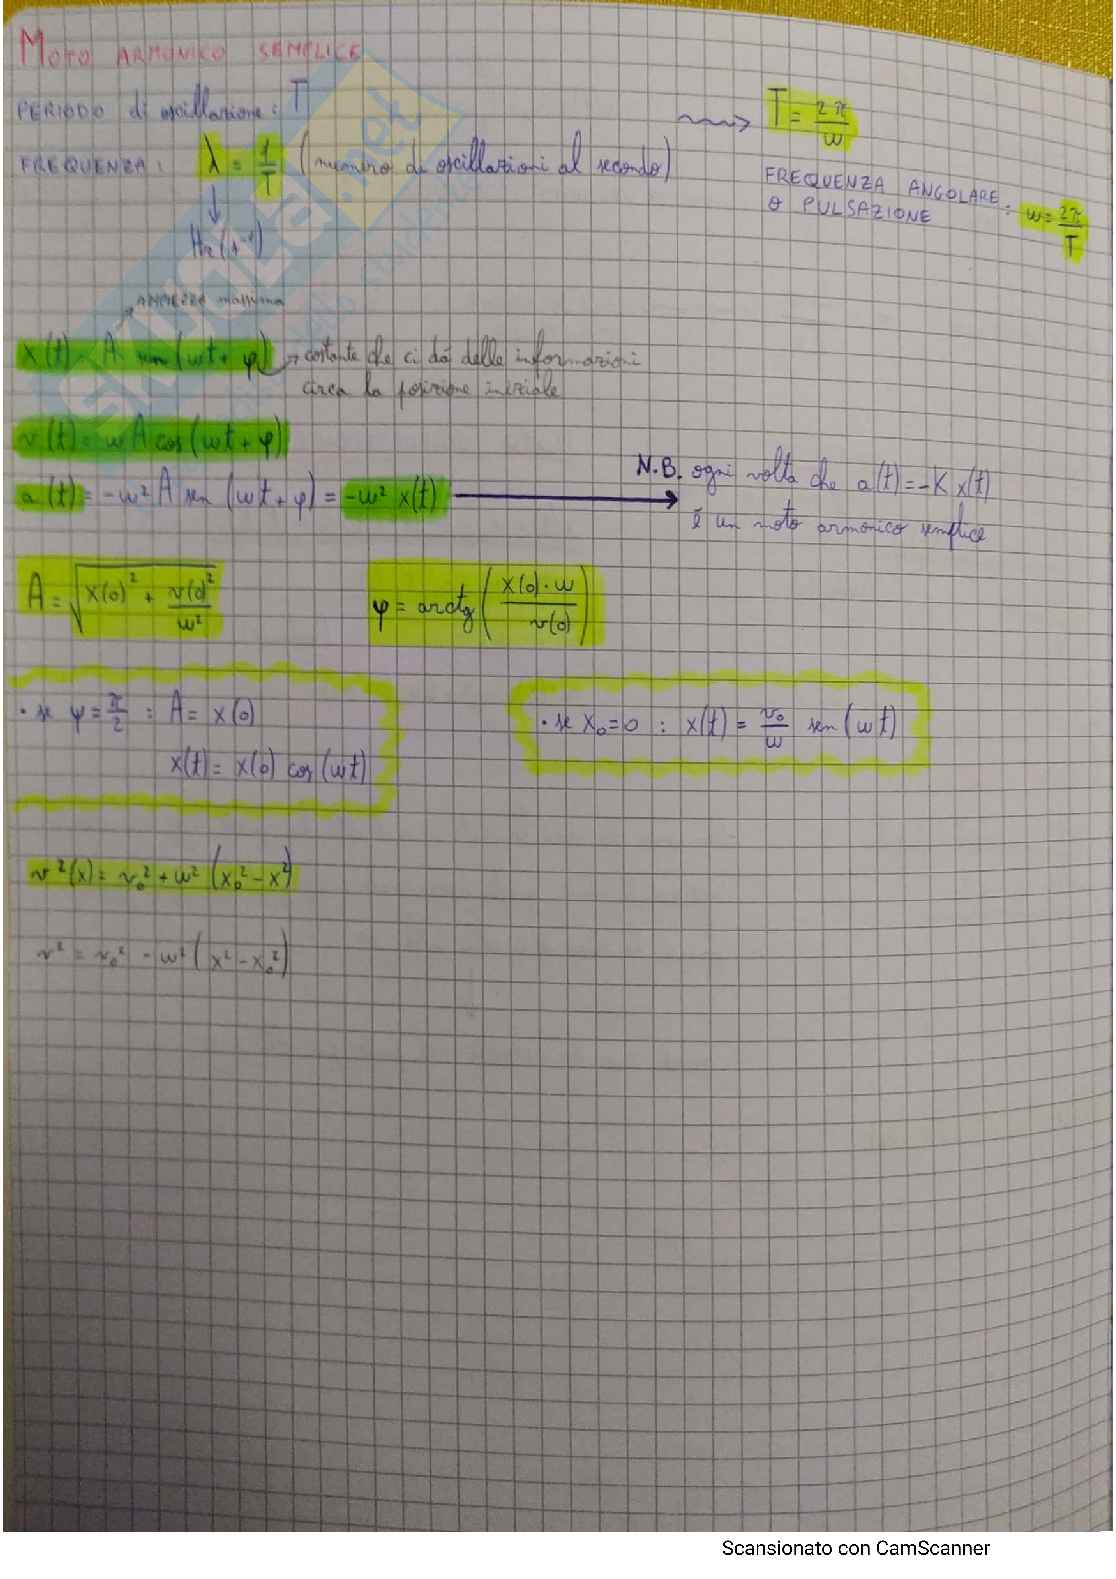 MOTO ARMONICO SEMPLICE
PERIODO di oscillazione: T
⟿ T = 2π/ω
FREQUENZA: λ = 1/T (numero di oscillazioni al secondo)
↓
Hz (s⁻¹)
FREQUENZA ANGOLARE
O PULSAZIONE : ω = 2π/T
→ AMPIEZZA massima
x(t) = A sen(ωt + φ) → costante che ci dà delle informazioni
circa la posizione iniziale
v(t) = ωA cos(ωt + φ)
a(t) = -ω² A sen(ωt + φ) = -ω² x(t) → N.B. ogni volta che a(t) = -K x(t)
è un moto armonico semplice
A = √(x(0)² + v(0)²/ω²)
φ = arctg(x(0)·ω / v(0))
• se φ = π/2 : A = x(0)
x(t) = x(0) cos(ωt)
• se x₀ = 0 : x(t) = v₀/ω sen(ωt)
v²(x) = v₀² + ω²(x₀² - x²)
v² = v₀² - ω²(x² - x₀²)
Scansionato con CamScanner
skuola.net